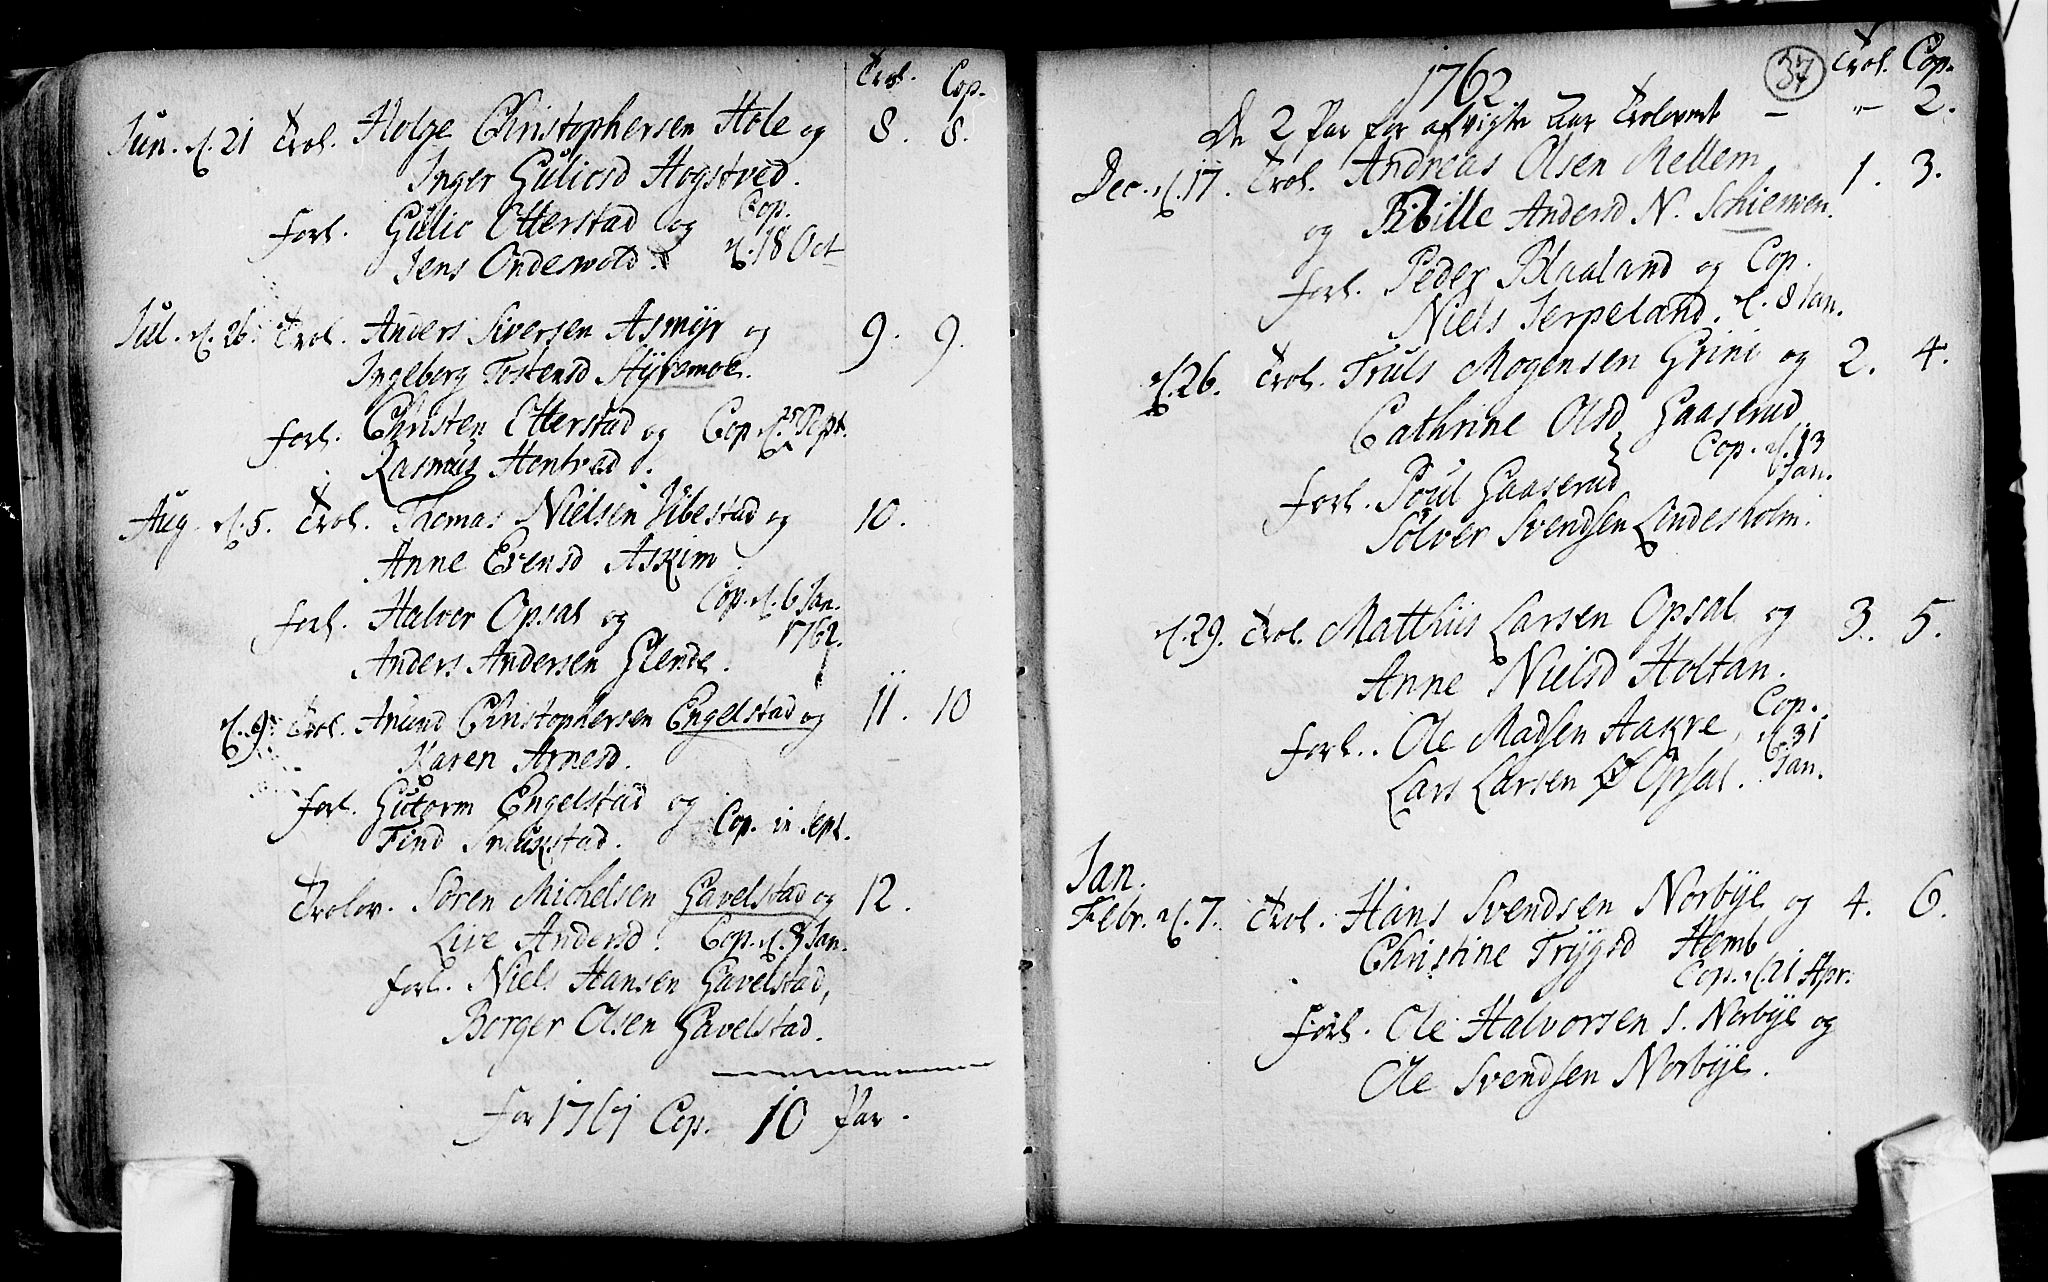 Trol. Cop.
Jun. d. 21 Trol. Holge Christophersen Hole og 8. 8.
Inger Guliosd Hogstved.
forl. Gulic Otterstad og Cop.
Jens Ondeswold. d. 18 Oct
Jul. d. 26. Trol. Anders Siversen Asmyr og 9. 9.
Ingeborg Tostensd Styremoe.
forl. Christen Otterstad og Cop. d. 25 Sept.
Rasmus Hontved.
Aug. d. 5. Trol. Thomas Nielsen Vibestad og 10.
Anne Evensd Askim
forl. Halvor Opsal og Cop. d. 6 Jan.
Anders Andersen Glende. 1762.
d. 9. Trol. Anund Christophersen Engelstad og 11. 10
Karen Arnesd.
forl. Gutorm Engelstad og
Find Smukstad. Cop. in Sept.
Trolov. Sören Michelsen Gavelstad og 12.
Live Andersd. Cop. d. 8 Jan.
forl. Niels Hansen Gavelstad,
Borger Olsen Gavelstad.
for 1761 Cop. 10 Par.
37
1762 Trol. Cop.
De 2 Par for afvigte Aar Trolovent – " – 2.
Dec. d. 17. Trol. Andreas Olsen Mellem 1. 3.
og Sibille Andersd N. Schiennen.
forl. Peder Blaaland og Cop.
Niels Jerpeland. d. 8 Jan.
d. 26. Trol. Truls Mogensen Grini og 2. 4.
Cathrine Olsd Gaaserud
Cop. d. 13
forl. Poul Gaaserud Jan.
Sölver Svendsen Lindesholm.
d. 29. Trol. Matthiis Larsen Opsal og 3. 5.
Anne Nielsd Holtan.
forl. Ole Madsen Aakre, Cop. d. 31
Lars Larsen Opsal. Jan.
Jan.
Febr. d. 7. Trol. Hans Svendsen Norbye og 4. 6.
Christine Trygsd Hemb
Cop. d. 21 Apr.
forl. Ole Halvorsen S. Norbye og
Ole Svendsen Norbye.